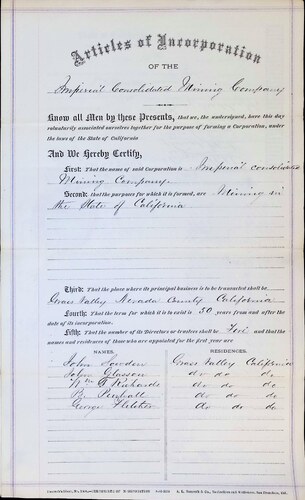 Articles of Incorporation
OF THE
Imperial Consolidated Mining Company
Know all Men by these Presents, that we, the undersigned, have this day
voluntarily associated ourselves together for the purpose of forming a Corporation, under
the laws of the State of California
And We Hereby Certify,
First: That the name of said Corporation is Imperial consolidated
Mining Company.
Second: that the purposes for which it is formed, are Mining in
the State of California
Third: That the place where its principal business is to be transacted shall be
Grass Valley, Nevada County California
Fourth: That the term for which it is to exist is 50 years from and after the
date of its incorporation.
Fifth: That the number of its Directors or trustees shall be five and that the
names and residences of those who are appointed for the first year are
NAMES. RESIDENCES.
John Lowden Grass Valley California
John Glasson do do do
Wm G Richards do do do
Penhall do do do
George Fletcher do do do